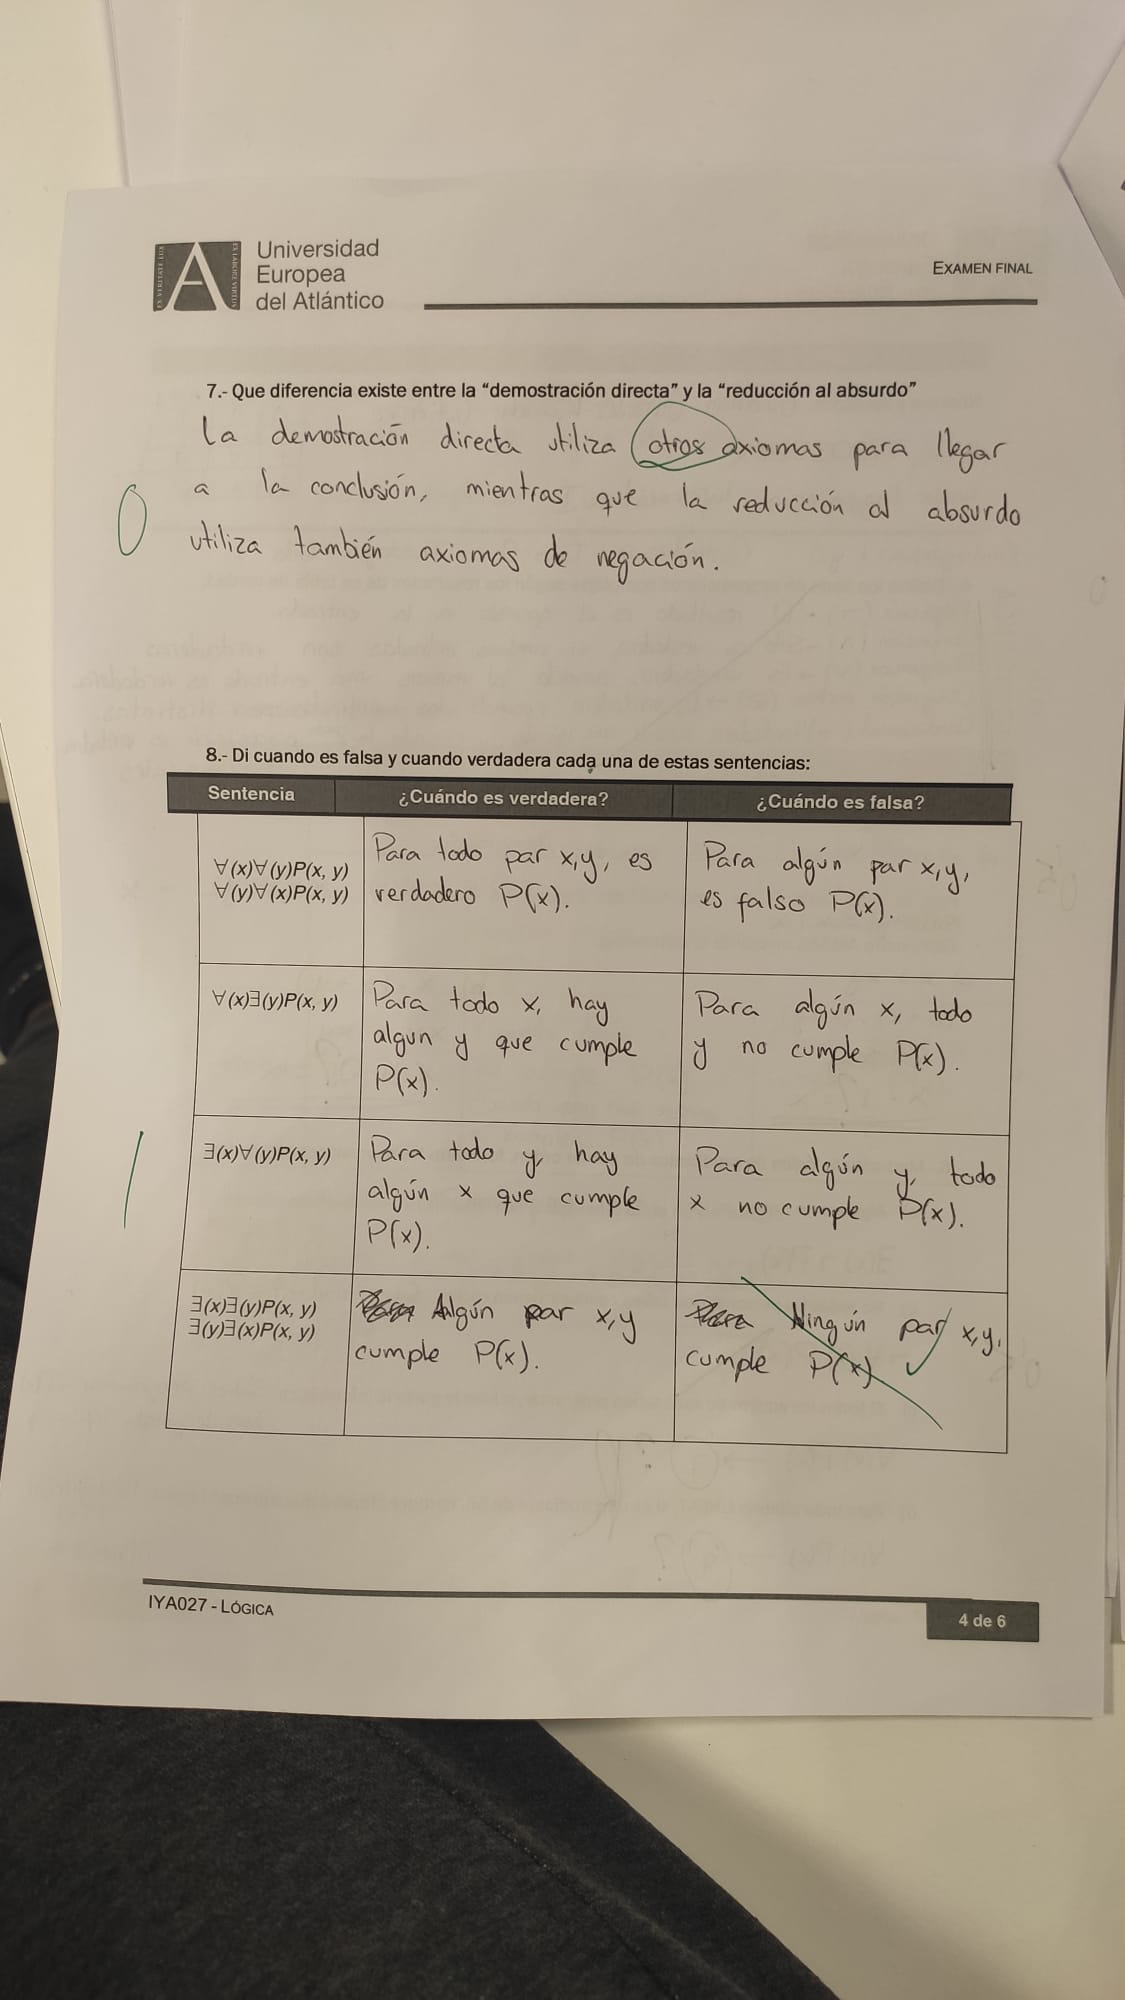 Universidad
Europea
del Atlántico
EXAMEN FINAL
7.- Que diferencia existe entre la “demostración directa” y la “reducción al absurdo”
La demostración directa utiliza otros axiomas para llegar
a la conclusión, mientras que la reducción al absurdo
utiliza también axiomas de negación.
0
8.- Di cuando es falsa y cuando verdadera cada una de estas sentencias:
Sentencia ¿Cuándo es verdadera? ¿Cuándo es falsa?
∀(x)∀(y)P(x, y)
∀(y)∀(x)P(x, y)
Para todo par x,y, es
verdadero P(x).
Para algún par x,y,
es falso P(x).
∀(x)∃(y)P(x, y)
Para todo x, hay
algun y que cumple
P(x).
Para algún x, todo
y no cumple P(x).
1
∃(x)∀(y)P(x, y)
Para todo y, hay
algún x que cumple
P(x).
Para algún y, todo
x no cumple P(x).
∃(x)∃(y)P(x, y)
∃(y)∃(x)P(x, y)
Algún par x,y
cumple P(x).
Ningún par x,y,
cumple P(x)
IYA027 - LÓGICA
4 de 6